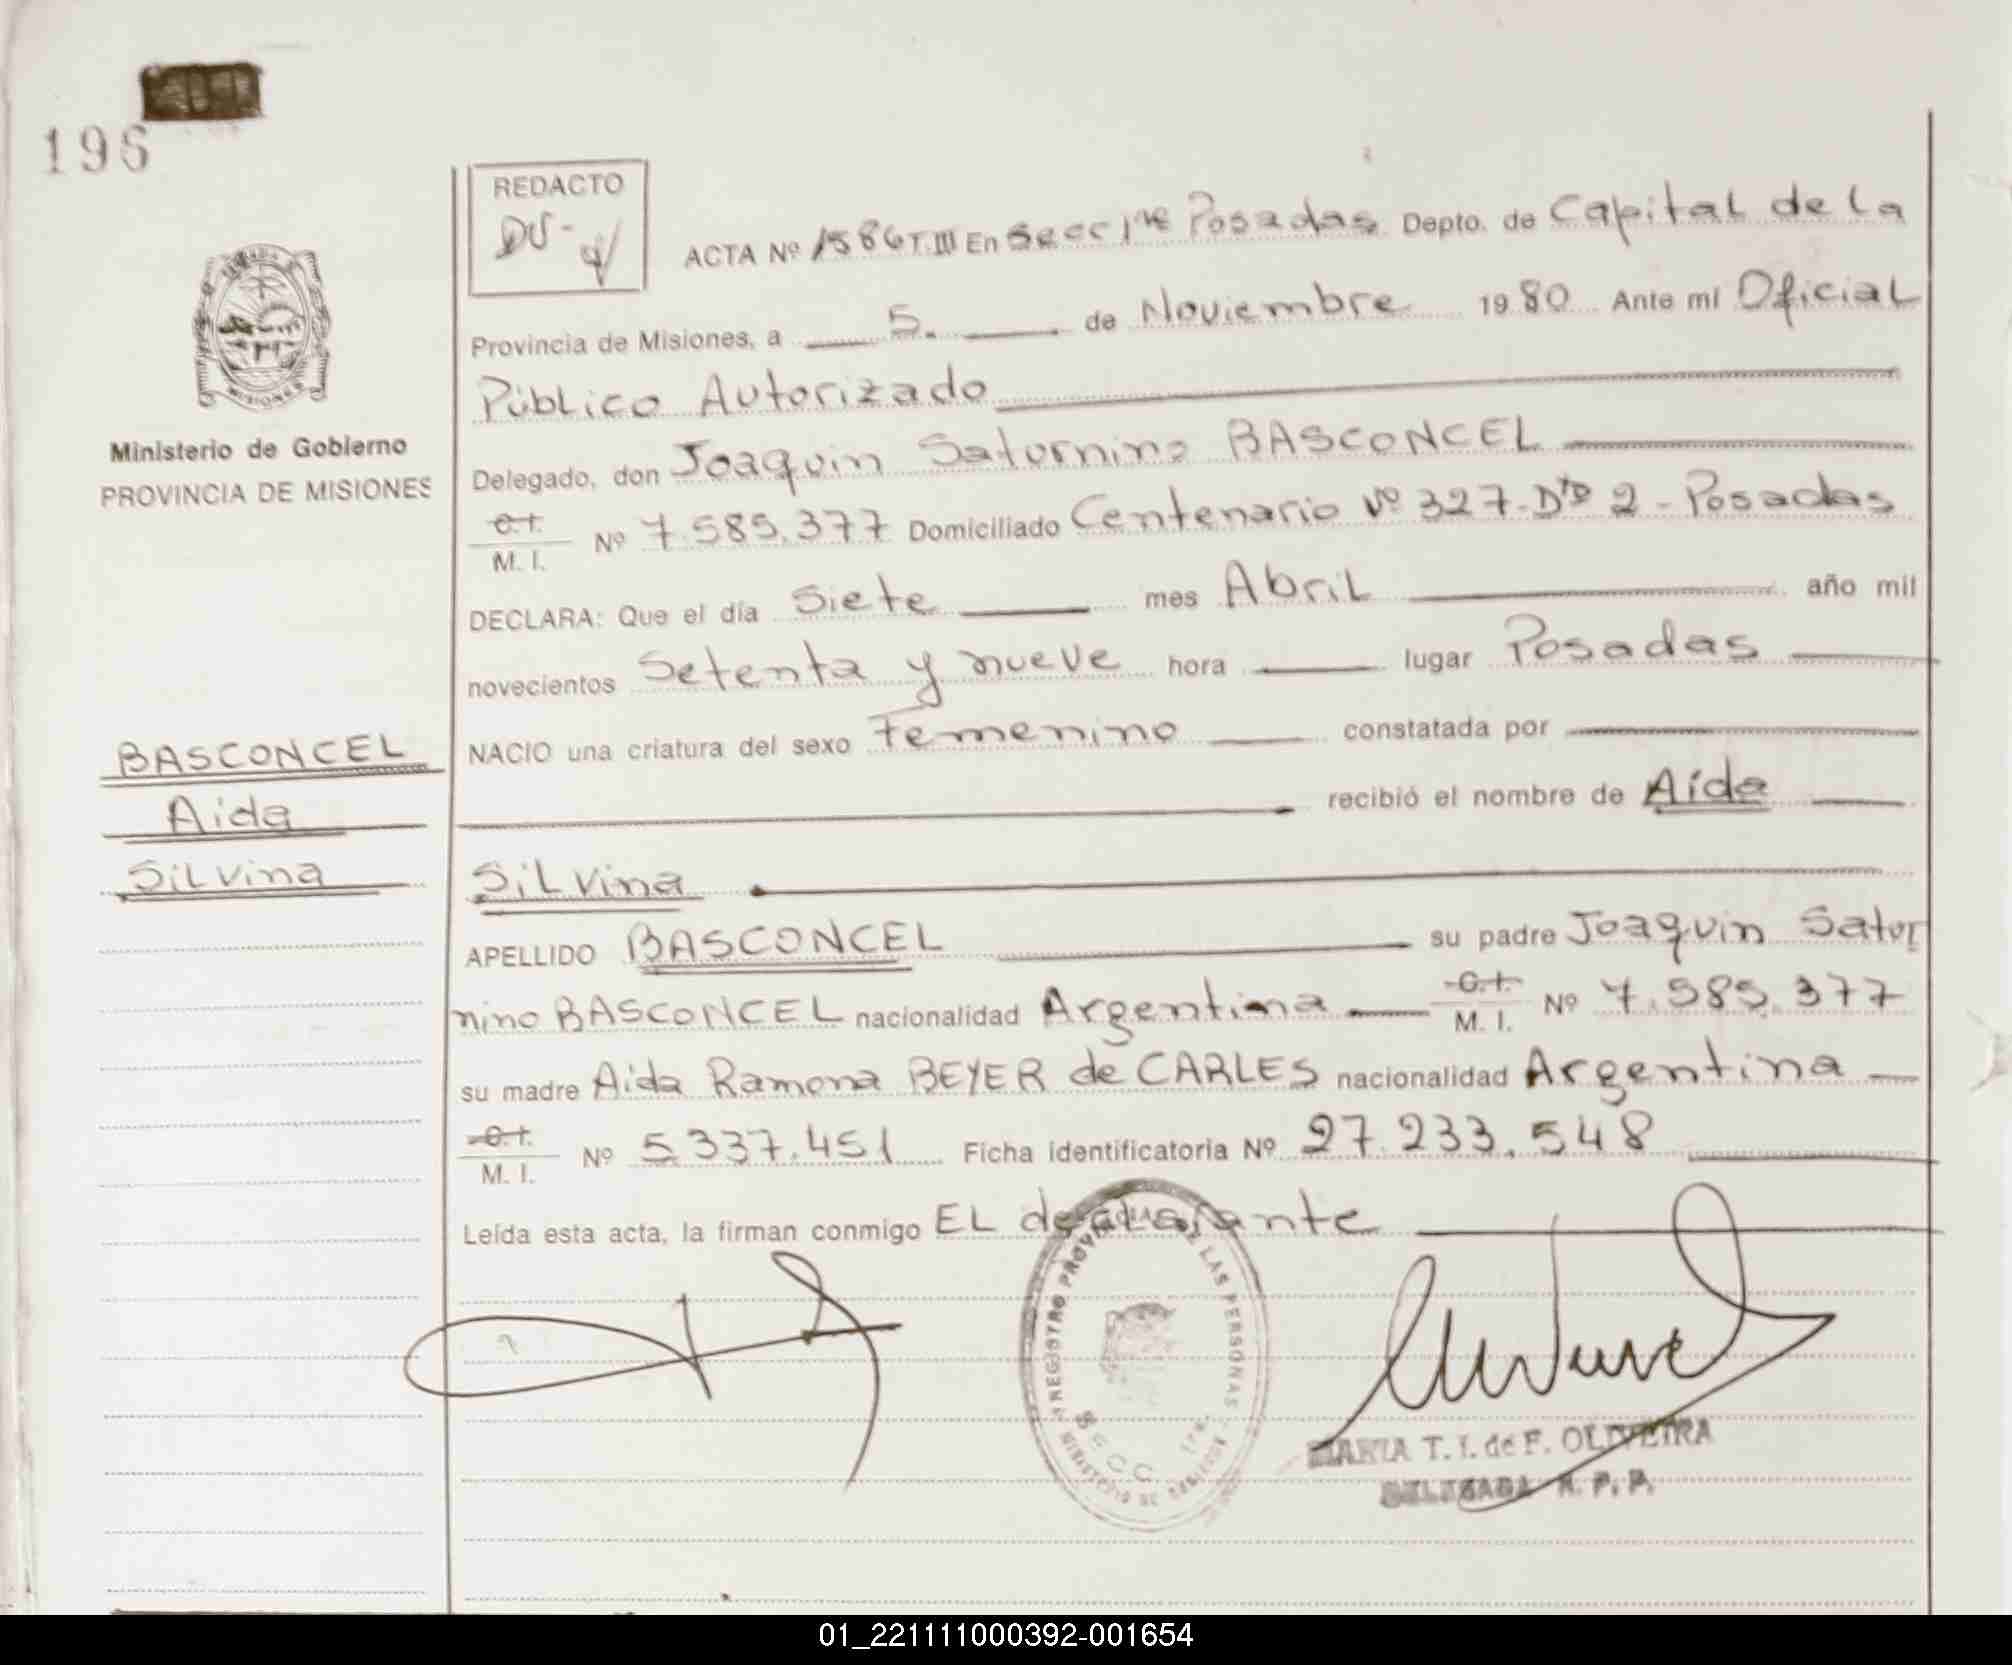 196
REDACTO
ACTA Nº 1586 T. III En Secc 1ra Posadas Depto. de Capital de la
Provincia de Misiones, a 5. de Noviembre 1980 Ante mi Oficial
Público Autorizado
Delegado, don Joaquin Saturnino BASCONCEL
C.I.
M. I. Nº 7.585.377 Domiciliado Centenario Nº 327-Dto 2 - Posadas
DECLARA: Que el día Siete mes Abril año mil
novecientos Setenta y nueve hora lugar Posadas
NACIO una criatura del sexo Femenino constatada por
recibió el nombre de Aída
Silvina
APELLIDO BASCONCEL su padre Joaquin Satur
nino BASCONCEL nacionalidad Argentina C.I. M. I. Nº 7.585.377
su madre Aida Ramona BEYER de CARLES nacionalidad Argentina
C.I.
M. I. Nº 5.337.451 Ficha identificatoria Nº 27.233.548
Leída esta acta, la firman conmigo EL declarante
MISIONES
Ministerio de Gobierno
PROVINCIA DE MISIONES
BASCONCEL
Aida
Silvina
REGISTRO PROVINCIAL DE LAS PERSONAS
MINISTERIO DE GOBIERNO
SECC 1ra.
MARIA T. I. de F. OLIVEIRA
DELEGADA R. P. P.
01_221111000392-001654